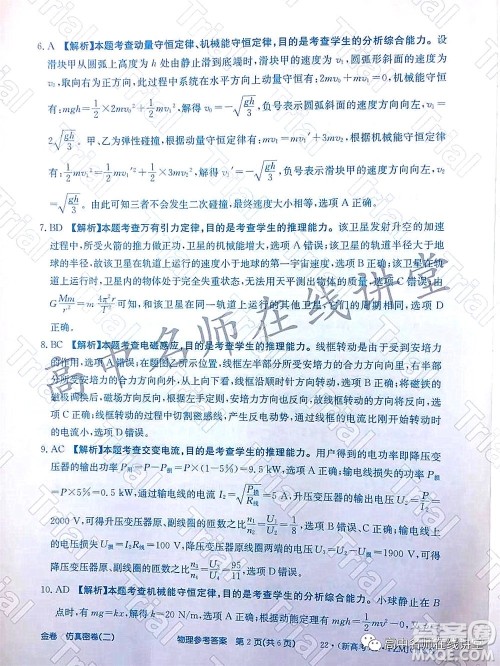 6. A 【解析】本题考查动量守恒定律、机械能守恒定律,目的是考查学生的分析综合能力。设
滑块甲从圆弧上高度为 h 处由静止滑到右端时,滑块甲的速度为 v₁,圆弧形斜面的速度为
v₀,取向右为正方向,此过程中系统在水平方向上动量守恒有:2mv₀+mv₁=0,机械能守恒
有:mgh=½×2mv₀²+½mv₁²,解得 v₀=-√(gh/3),负号表示圆弧斜面速度方向向左,v₁=
2√(gh/3)。甲、乙为弹性碰撞,根据动量守恒定律有:mv₁=mv₁′+3mv₂,根据机械能守恒定律
有:½mv₁²=½mv₁′²+½×3mv₂²,解得 v₁′=-√(gh/3),负号表示滑块甲的速度方向向左,v₂
=√(gh/3)。由此可知三者不会发生二次碰撞,最终速度大小相等,选项 A 正确。
7. BD 【解析】本题考查万有引力定律,目的是考查学生的推理能力。该卫星发射升空的加速
过程中,所受火箭的推力做正功,卫星的机械能增大,选项 A 错误;该卫星的轨道半径大于地
球的半径,故该卫星在轨道上运行的速度小于地球的第一宇宙速度,选项 B 正确;该卫星在轨
道上运行时,卫星内的物体处于完全失重状态,无法使用天平测出物体的质量,选项 C 错误;由
G Mm/r²=m 4π²r/T² 可知,和该卫星在同一轨道上运行的其他卫星,它们的周期相同,选项 D
正确。
8. BC 【解析】本题考查电磁感应,目的是考查学生的推理能力。线框转动是由于受到安培力
的作用,选项 A 错误;在题图左图所示位置,线框左半部分所受安培力的合力方向向外,右半部
分所受安培力的合力方向向内,从上往下看,线框沿顺时针方向转动,选项 B 正确;将磁铁的
磁极对调,根据左手定则,安培力方向改变,从上往下看,线框将沿逆时针方向转动,选
项 C 正确;线框转动的过程中切割磁感线,产生反电动势,通过线框的电流比刚开始转动时
的电流小,选项 D 错误。
9. AC 【解析】本题考查交变电流,目的是考查学生的推理能力。用户得到的电功率即降压变
压器的输出功率 P用=P-P损=P×(1-5%)=9.5 kW,选项 A 正确;输电线损失的功率 P损
=P×5%=0.5 kW,通过输电线的电流 I₂=√(P损/R线)=5 A,升压变压器的输出电压 U₂=P/I₂=
2000 V,可得升压变压器原、副线圈的匝数比 n₁/n₂=U₁/U₂=1/8,选项 B 错误、C 正确;输电线上
的电压损失 U损=I₂R线=100 V,可得降压变压器原线圈两端的电压 U₃=U₂-U损=1900 V,
选项 D 错误。
10. AD 【解析】本题考查机械能守恒定律,目的是考查学生的推理能力。小球静止在 B
点时,有 mg=kx,解得 k=20 N/m,选项 A 正确
金卷 仿真密卷(二) 物理参考答案 第 2 页(共 6 页)
高中名师在线讲堂
高中名师在线讲堂
Trial